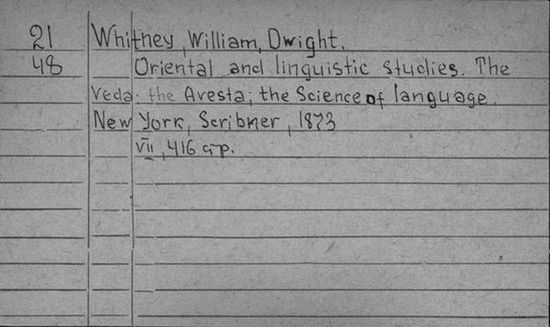 21 Whitney, William, Dwight.
48 Oriental and linguistic studies. The
Veda; the Avesta; the Science of language.
New York, Scribner, 1873
VII, 416 cтp.